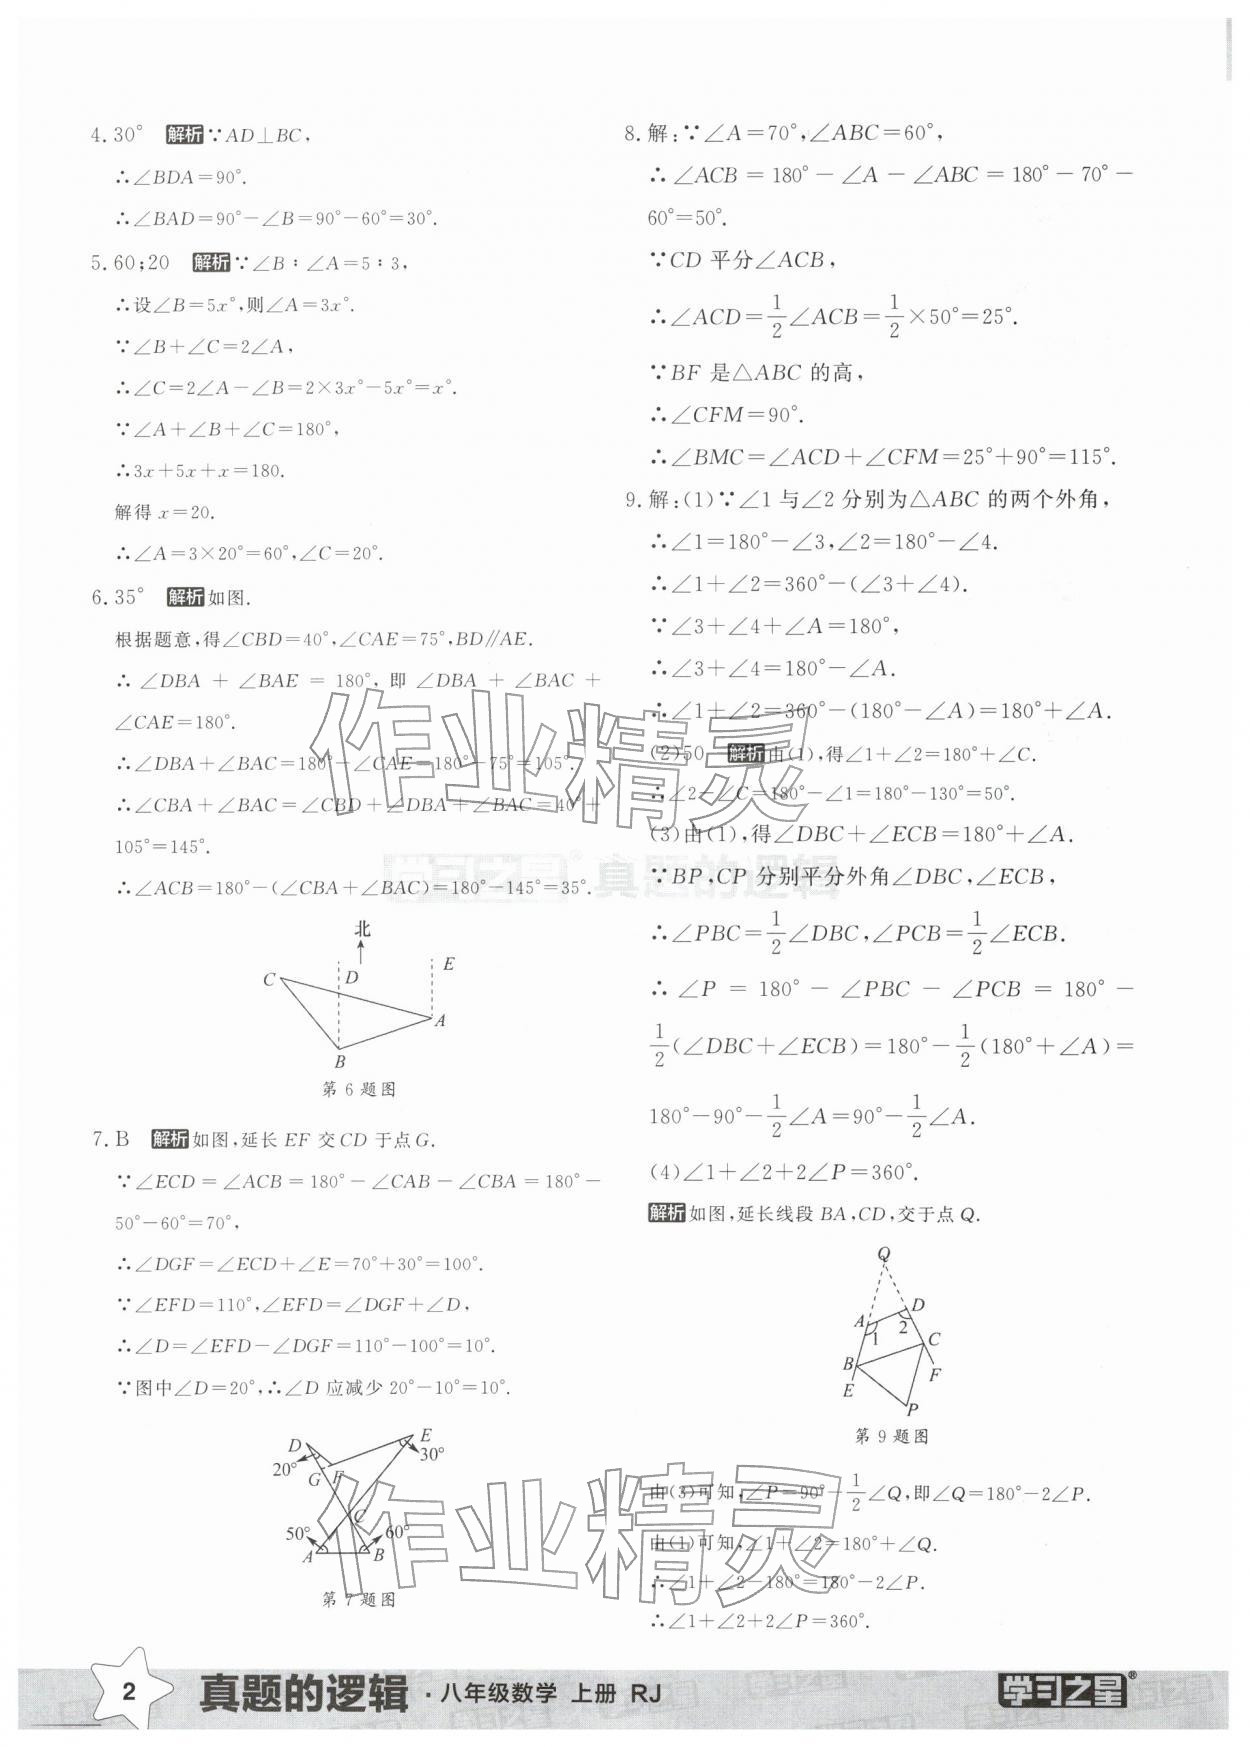 4.30° 解析∵AD⊥BC,
∴∠BDA=90°.
∴∠BAD=90°-∠B=90°-60°=30°.
5.60;20 解析∵∠B∶∠A=5∶3,
∴设∠B=5x°,则∠A=3x°.
∵∠B+∠C=2∠A,
∴∠C=2∠A-∠B=2×3x°-5x°=x°.
∵∠A+∠B+∠C=180°,
∴3x+5x+x=180.
解得x=20.
∴∠A=3×20°=60°,∠C=20°.
6.35° 解析如图.
根据题意,得∠CBD=40°,∠CAE=75°,BD∥AE.
∴∠DBA+∠BAE=180°,即∠DBA+∠BAC+
∠CAE=180°.
∴∠DBA+∠BAC=180°-∠CAE=180°-75°=105°.
∴∠CBA+∠BAC=∠CBD+∠DBA+∠BAC=40°+
105°=145°.
∴∠ACB=180°-(∠CBA+∠BAC)=180°-145°=35°.
北
C D E
A
B
第6题图
7.B 解析如图,延长EF交CD于点G.
∵∠ECD=∠ACB=180°-∠CAB-∠CBA=180°-
50°-60°=70°,
∴∠DGF=∠ECD+∠E=70°+30°=100°.
∵∠EFD=110°,∠EFD=∠DGF+∠D,
∴∠D=∠EFD-∠DGF=110°-100°=10°.
∵图中∠D=20°,∴∠D应减少20°-10°=10°.
D E
20° G F 30°
C
50° 60°
A B
第7题图
8.解:∵∠A=70°,∠ABC=60°,
∴∠ACB=180°-∠A-∠ABC=180°-70°-
60°=50°.
∵CD平分∠ACB,
∴∠ACD=1/2∠ACB=1/2×50°=25°.
∵BF是△ABC的高,
∴∠CFM=90°.
∴∠BMC=∠ACD+∠CFM=25°+90°=115°.
9.解:(1)∵∠1与∠2分别为△ABC的两个外角,
∴∠1=180°-∠3,∠2=180°-∠4.
∴∠1+∠2=360°-(∠3+∠4).
∵∠3+∠4+∠A=180°,
∴∠3+∠4=180°-∠A.
∴∠1+∠2=360°-(180°-∠A)=180°+∠A.
(2)50 解析由(1),得∠1+∠2=180°+∠C.
∴∠2-∠C=180°-∠1=180°-130°=50°.
(3)由(1),得∠DBC+∠ECB=180°+∠A.
∵BP,CP分别平分外角∠DBC,∠ECB,
∴∠PBC=1/2∠DBC,∠PCB=1/2∠ECB.
∴∠P=180°-∠PBC-∠PCB=180°-
1/2(∠DBC+∠ECB)=180°-1/2(180°+∠A)=
180°-90°-1/2∠A=90°-1/2∠A.
(4)∠1+∠2+2∠P=360°.
解析如图,延长线段BA,CD,交于点Q.
Q
A D
1 2 C
B
E F
P
第9题图
由(3)可知,∠P=90°-1/2∠Q,即∠Q=180°-2∠P.
由(1)可知,∠1+∠2=180°+∠Q.
∴∠1+∠2-180°=180°-2∠P.
∴∠1+∠2+2∠P=360°.
作业精灵
学习之星® 真题的逻辑
作业精灵
2 真题的逻辑·八年级数学 上册 RJ 学习之星®